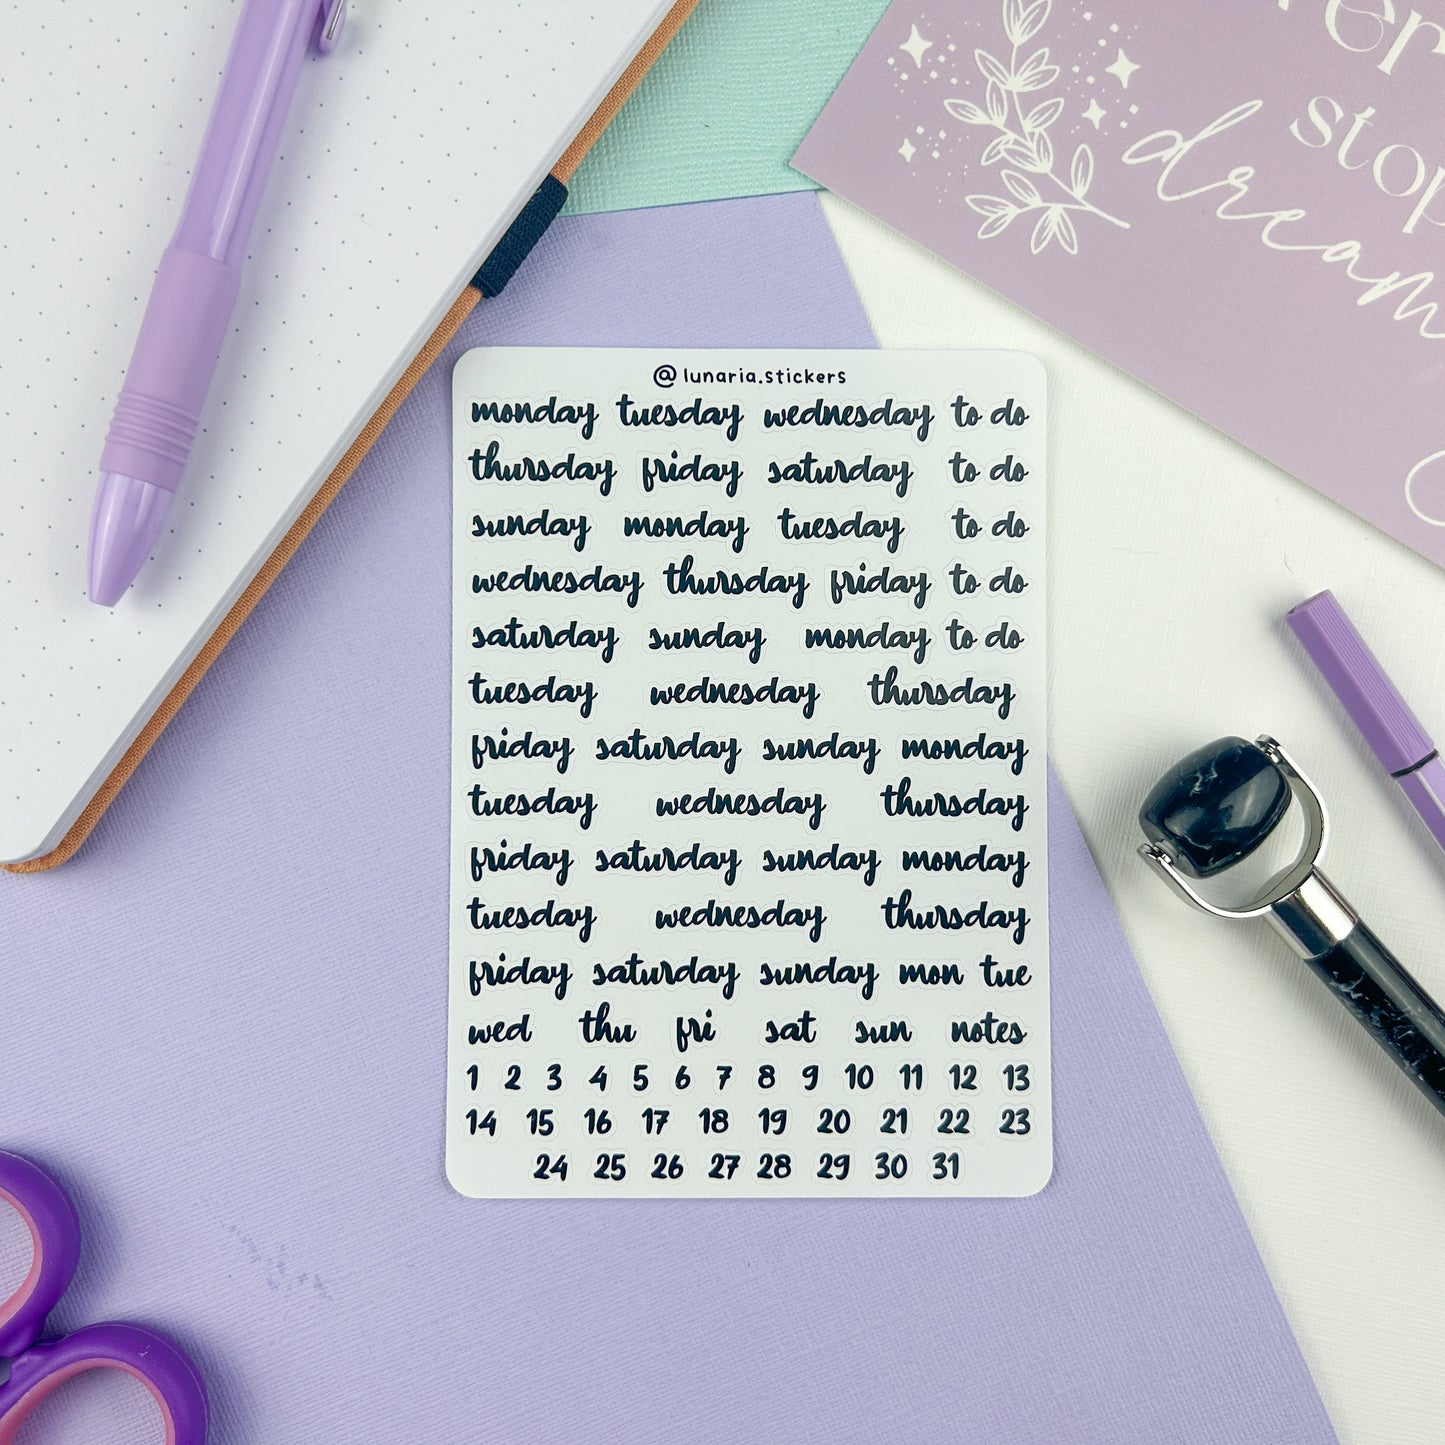 stop
dream
@lunaria.stickers
monday tuesday wednesday to do
thursday friday saturday to do
sunday monday tuesday to do
wednesday thursday friday to do
saturday sunday monday to do
tuesday wednesday thursday
friday saturday sunday monday
tuesday wednesday thursday
friday saturday sunday monday
tuesday wednesday thursday
friday saturday sunday mon tue
wed thu fri sat sun notes
1 2 3 4 5 6 7 8 9 10 11 12 13
14 15 16 17 18 19 20 21 22 23
24 25 26 27 28 29 30 31